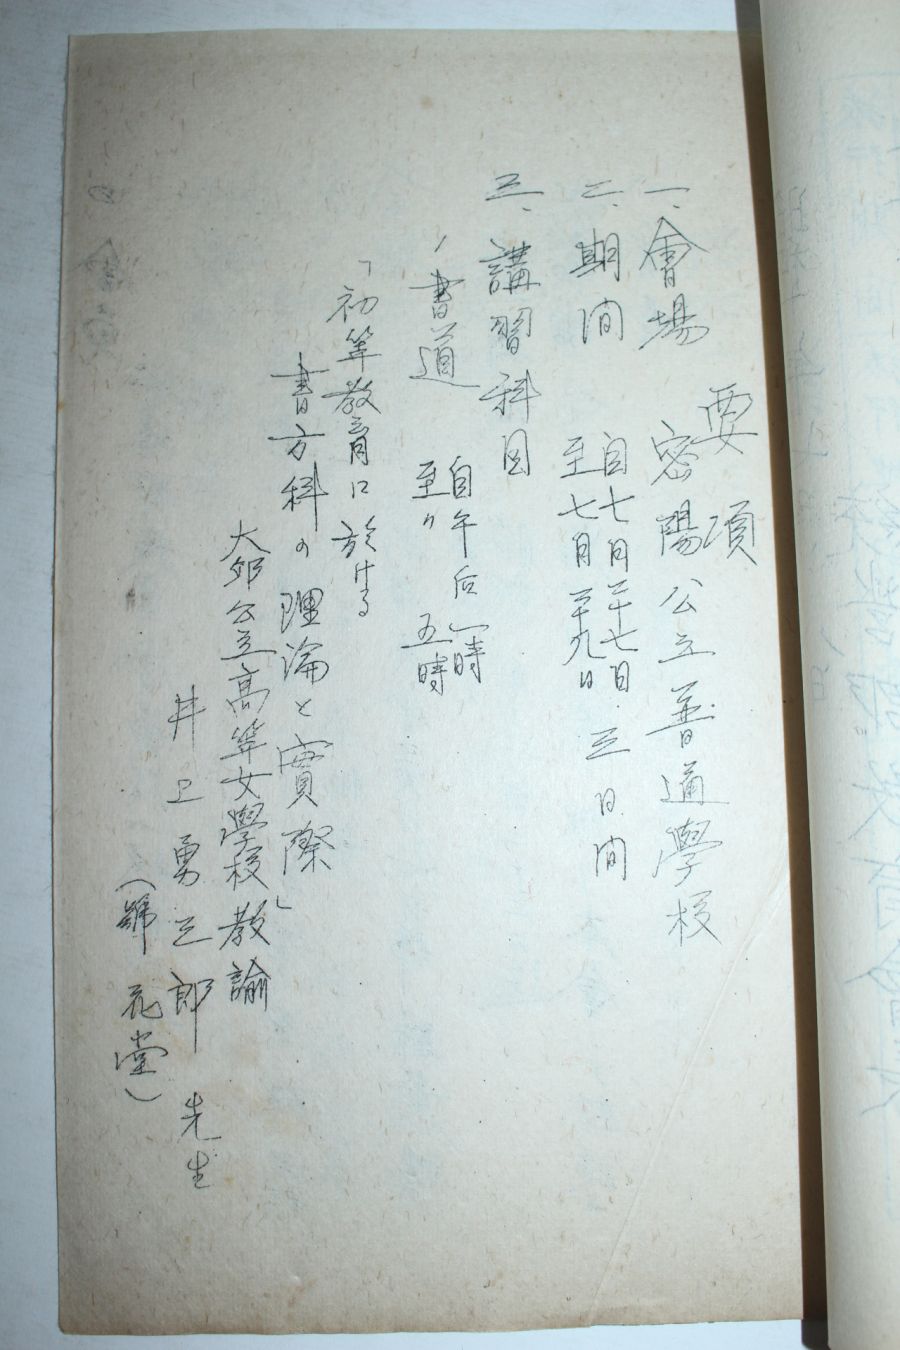 要項
一、會場 密陽公立普通學校
二、期間 自七月二十七日 至七月二十九日 三日間
三、講習科目
1 書道 自午后一時 至〃五時
「初等教育に於ける
書方科の理論と實際」
大邱公立高等女學校教諭
井上勇三郎 先生
(號 花堂)